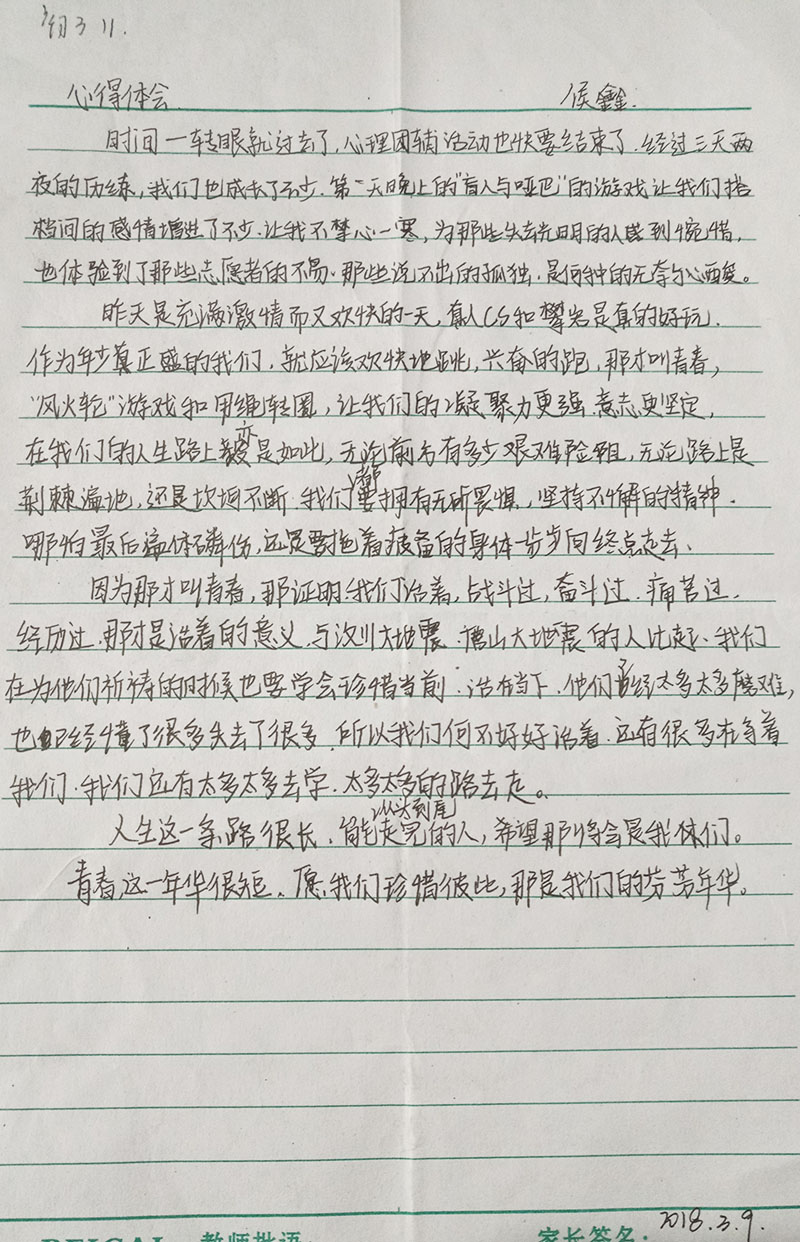 初311.
心得体会 侯鑫.
时间一转眼就过去了,心理团辅活动也快要结束了.经过三天两
夜的历练,我们也成长了不少.第一天晚上的"盲人与哑巴"的游戏让我们拍
档间的感情增进了不少.让我不禁心一寒,为那些失去光明的人感到惋惜,
也体验到了那些志愿者的不易.那些说不出的孤独.是何种的无奈与心酸。
昨天是充满激情而又欢快的一天,真人CS和攀岩是真的好玩.
作为年少真正盛的我们,就应该欢快地跳,兴奋的跑,那才叫青春,
"风火轮"游戏和用绳转圈,让我们的凝聚力更强.意志更坚定,
在我们的人生路上亦是如此,无论前方有多少艰难险阻,无论路上是
荆棘遍地,还是坎坷不断.我们都要拥有无所畏惧,坚持不懈的精神.
哪怕最后遍体鳞伤,还是要拖着疲备的身体一步步向终点走去.
因为那才叫青春,那证明我们活着,战斗过,奋斗过.痛苦过.
经历过.那才是活着的意义.与汶川大地震.唐山大地震的人比起.我们
在为他们祈祷的时候也要学会珍惜当前.活在当下.他们经太多太多磨难,
也已经懂了很多失去了很多.所以我们何不好好活着.还有很多在等着
我们.我们还有太多太多去学.太多太多的路去走。
人生这一条路很长.能从头到尾走完的人,希望那将会是我们。
青春这一年华很短.愿我们珍惜彼此,那是我们的芬芳年华。
教师批语: 家长签名: 2018.3.9.